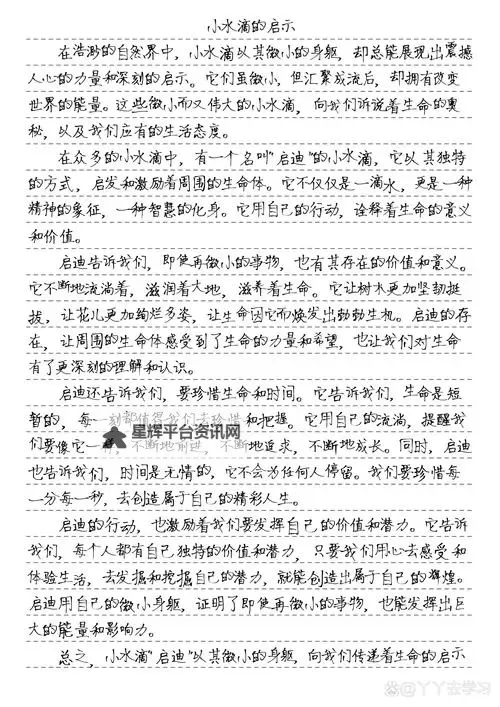 小水滴的启示
在浩渺的自然界中，小水滴以其微小的身躯，却总能展现出震撼
人心的力量和深刻的启示。它们虽微小，但汇聚成流后，却拥有改变
世界的能量。这些微小而又伟大的小水滴，向我们诉说着生命的奥
秘，以及我们应有的生活态度。
在众多的小水滴中，有一个名叫"启迪"的小水滴，它以其独特
的方式，启发和激励着周围的生命体。它不仅仅是一滴水，更是一种
精神的象征，一种智慧的化身。它用自己的行动，诠释着生命的意义
和价值。
启迪告诉我们，即使再微小的事物，也有其存在的价值和意义。
它不断地流淌着，滋润着大地，滋养着生命。它让树木更加坚韧挺
拔，让花儿更加绚烂多姿，让生命因它而焕发出勃勃生机。启迪的存
在，让周围的生命体感受到了生命的力量和希望，也让我们对生命
有了更深刻的理解和认识。
启迪还告诉我们，要珍惜生命和时间。它告诉我们，生命是短
暂的，每一刻都值得我们去珍惜和把握。它用自己的流淌，提醒我
们要像它一样，不断地前进，不断地追求，不断地成长。同时，启迪
也告诉我们，时间是无情的，它不会为任何人停留。我们要珍惜每
一分每一秒，去创造属于自己的精彩人生。
启迪的行动，也激励着我们要发挥自己的价值和潜力。它告诉
我们，每个人都有自己独特的价值和潜力，只要我们用心去感受和
体验生活，去发掘和挖掘自己的潜力，就能创造出属于自己的辉煌。
启迪用自己的微小身躯，证明了即使再微小的事物，也能发挥出巨
大的能量和影响力。
总之，小水滴"启迪"以其微小的身躯，向我们传递着生命的启示
星辉平台资讯网
@丫丫去学习